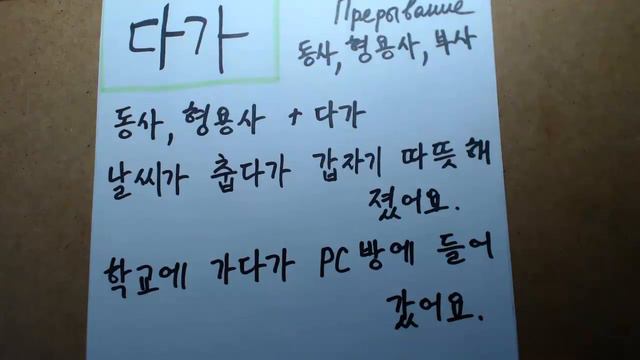 다가
Прерывание
동사, 형용사, 부사
동사, 형용사 + 다가
날씨가 춥다가 갑자기 따뜻해
졌어요.
학교에 가다가 PC방에 들어
갔어요.